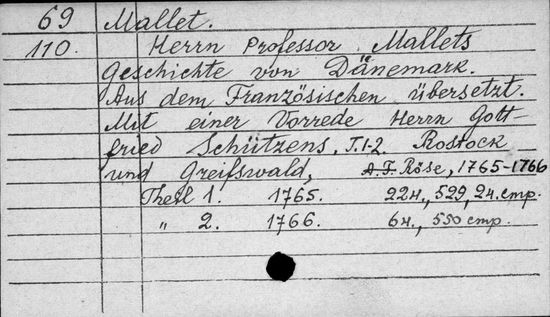 69 Mallet.
110. Herrn Professor Mallets
Geschichte von Dänemark.
Aus dem Französischen übersetzt.
Mit einer Vorrede Herrn Gott-
fried Schützens, T.1-2 Rostock
und Greifswald, A.F. Röse, 1765-1766
Theil 1. 1765. 22н., 529, 24 стр.
„ 2. 1766. 6н., 550 стр.